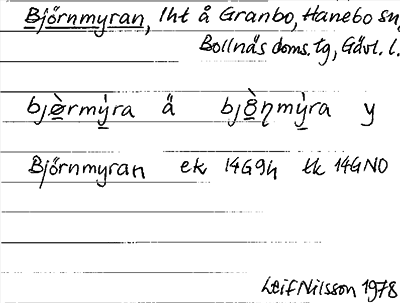 Björnmyran, lht å Granbo, Hanebo sn,
Bollnäs doms. tg, Gävl. l.
bjø̀rmỳra ä bjò̱ņmỳra y
Björnmyran ek 14G9h tk 14GNO
Leif Nilsson 1978